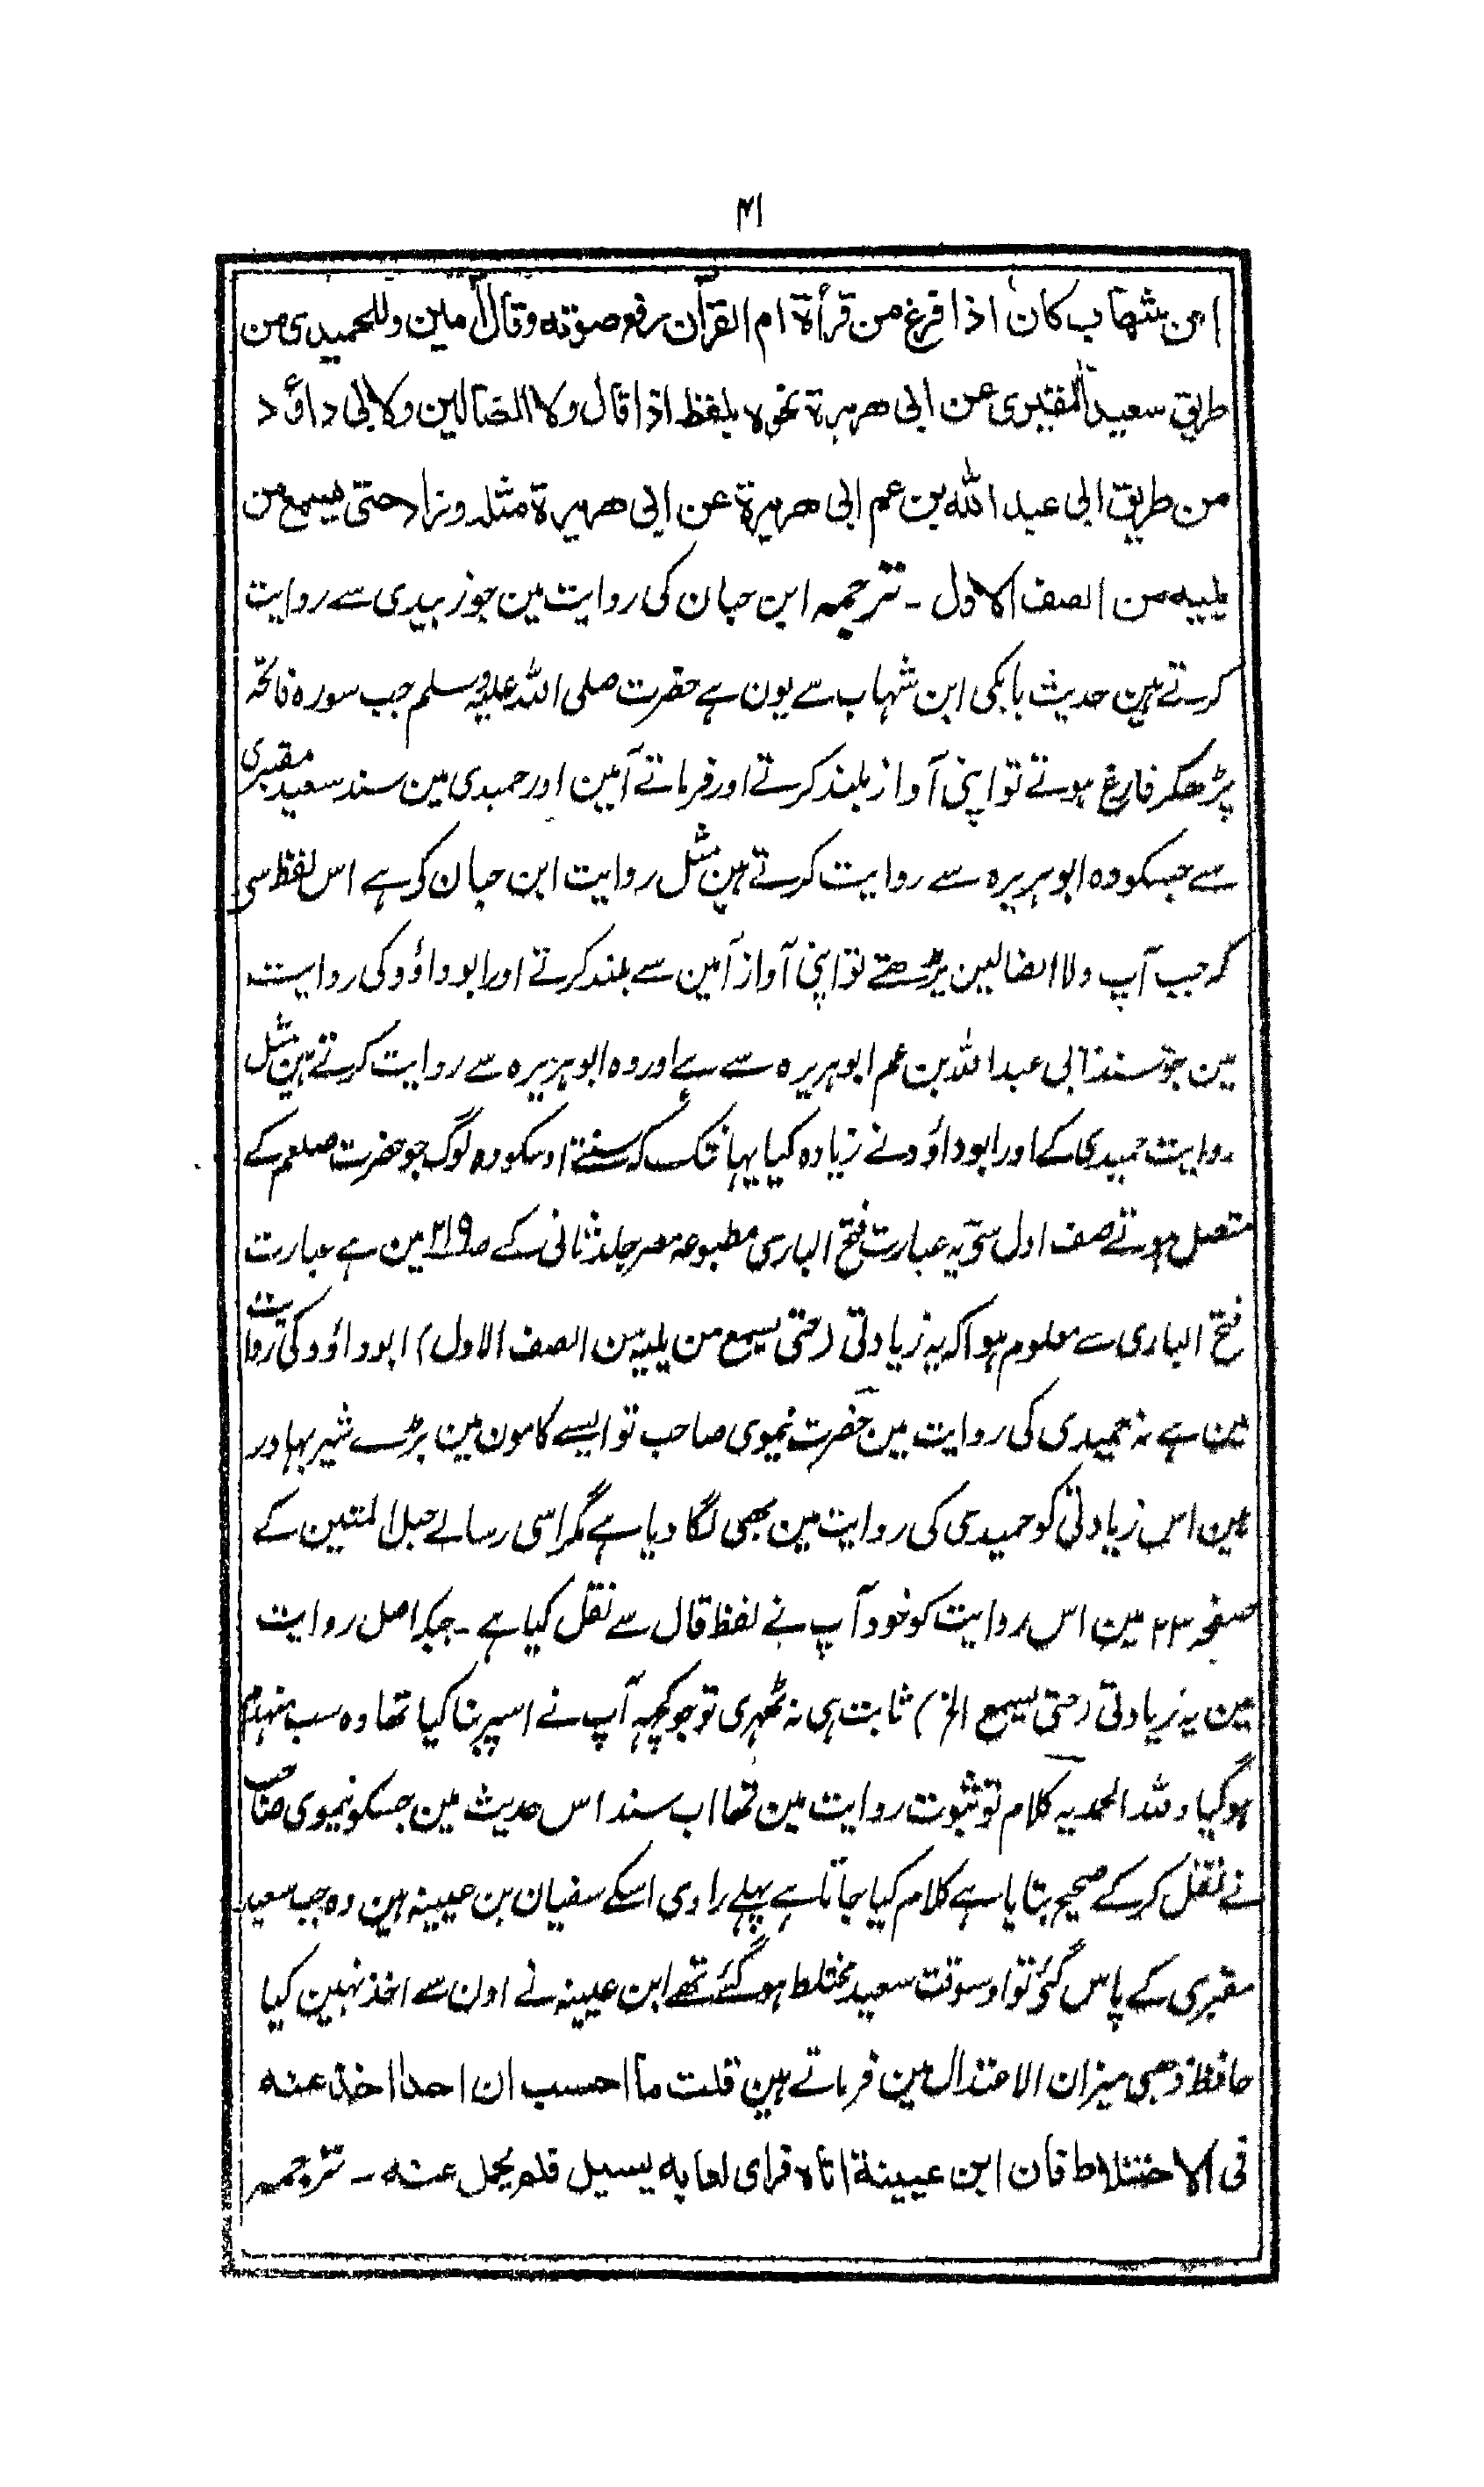 ۴۱
ابن شهاب كان اذا فرغ من قرأة ام القرآن رفع صوته وقال آمين وللحميدى من
طريق سعيد المقبرى عن ابى هريرة نحوه بلفظ اذا قال ولا الضالين ولابى داؤد
من طريق ابى عبد الله بن عم ابى هريرة عن ابى هريرة مثله وزاد حتى يسمع من
يليه من الصف الاول ۔ ترجمہ ابن حبان کی روایت مین جو زبیدی سے روایت
کرتے ہین حدیث بابکی ابن شہاب سے یون ہے حضرت صلی اللہ علیہ وسلم جب سورہ فاتحہ
پڑھکر فارغ ہوتے تو اپنی آواز بلند کرتے اور فرماتے آمین اور حمیدی مین سند سعید مقبری
سے جسکو وہ ابو ہریرہ سے روایت کرتے ہین مثل روایت ابن حبان کے ہے اس لفظ سی
کہ جب آپ ولا الضالین پڑھتے تو اپنی آواز آمین سے بلند کرتے اور ابو داؤد کی روایت
مین جو سند ابی عبد اللہ بن عم ابو ہریرہ سے ہے اور وہ ابو ہریرہ سے روایت کرتے ہین مثل
روایت حمیدی کے اور ابو داؤد نے زیادہ کیا یہانتک کہ سنتے اوسکو وہ لوگ جو حضرت صلعم کے
متصل ہوتے صف اول سی یہ عبارت فتح الباری مطبوعہ مصر جلد ثانی کے ص۲۱۹ مین ہے عبارت
فتح الباری سے معلوم ہوا کہ یہ زیادتی (حتی یسمع من یلیہ من الصف الاول) ابو داؤد کی روایت
مین ہے نہ حمیدی کی روایت مین حضرت نیموی صاحب تو ایسے کامون مین بڑے شیر بہادر
ہین اس زیادتی کو حمیدی کی روایت مین بھی لگا دیا ہے مگر اسی رسالے حبل المتین کے
صفحہ ۲۳ مین اس روایت کو خود آپ نے لفظ قال سے نقل کیا ہے ۔ جبکہ اصل روایت
مین یہ زیادتی (حتی یسمع الخ) ثابت ہی نہ ٹھہری تو جو کچھہ آپ نے اسپر بنا کیا تھا وہ سب منہدم
ہو گیا وللہ الحمد یہ کلام تو ثبوت روایت مین تھا اب سند اس حدیث مین جسکو نیموی صاحب
نے نقل کر کے صحیح بتایا ہے کلام کیا جاتا ہے پہلے راوی اسکے سفیان بن عیینہ ہین وہ جب سعید
مقبری کے پاس گئی تو اوسوقت سعید مختلط ہو گئے تھے ابن عیینہ نے اون سے اخذ نہین کیا
حافظ ذھبی میزان الاعتدال مین فرماتے ہین قلت ما احسب ان احدا اخذ عنه
فى الاختلاط فان ابن عيينة اتاه فراى لعابه يسيل فلم يحمل عنه ۔ ترجمہ